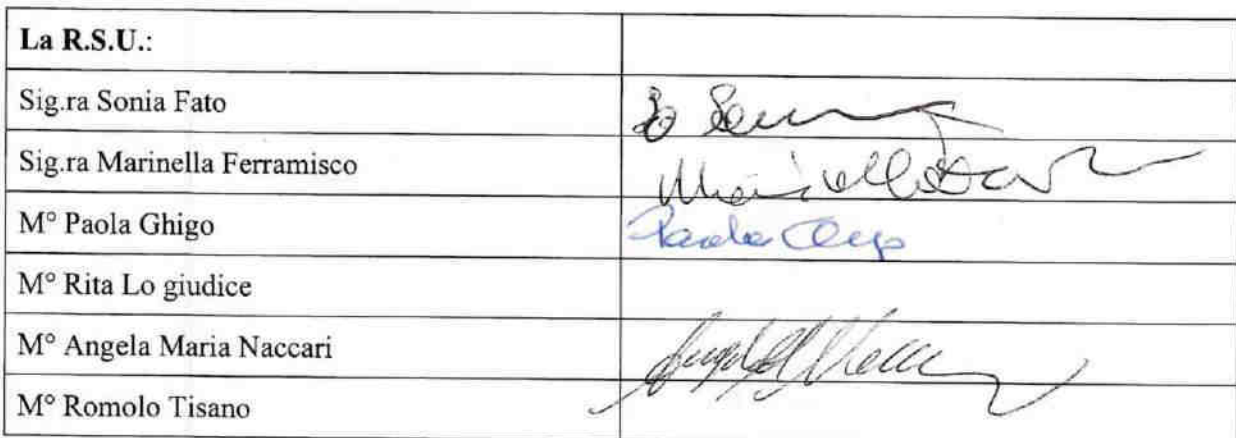 La R.S.U.:
Sig.ra Sonia Fato
Sig.ra Marinella Ferramisco
M° Paola Ghigo
Paola Ghigo
M° Rita Lo giudice
M° Angela Maria Naccari
M° Romolo Tisano